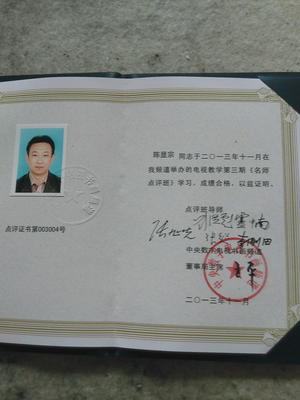 陈显宗 同志于二〇一三年十一月在
我频道举办的电视教学第三期《名师
点评班》学习。成绩合格，以兹证明。
点评班导师
点评证书第003004号
中央数字电视书画频道
董事局主席
二〇一三年十一月